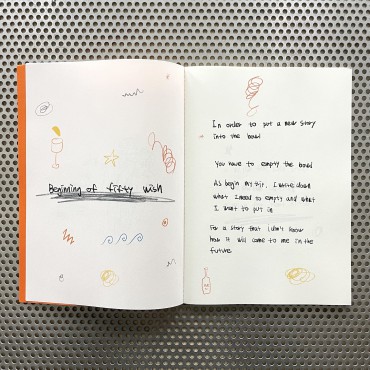 Beginning of fifty wish
In order to put a new story
into the bowl
You have to empty the bowl
As begin my trip, I write down
what I need to empty and what
I want to put in
For a story that I don't know
how it will come to me in the
future